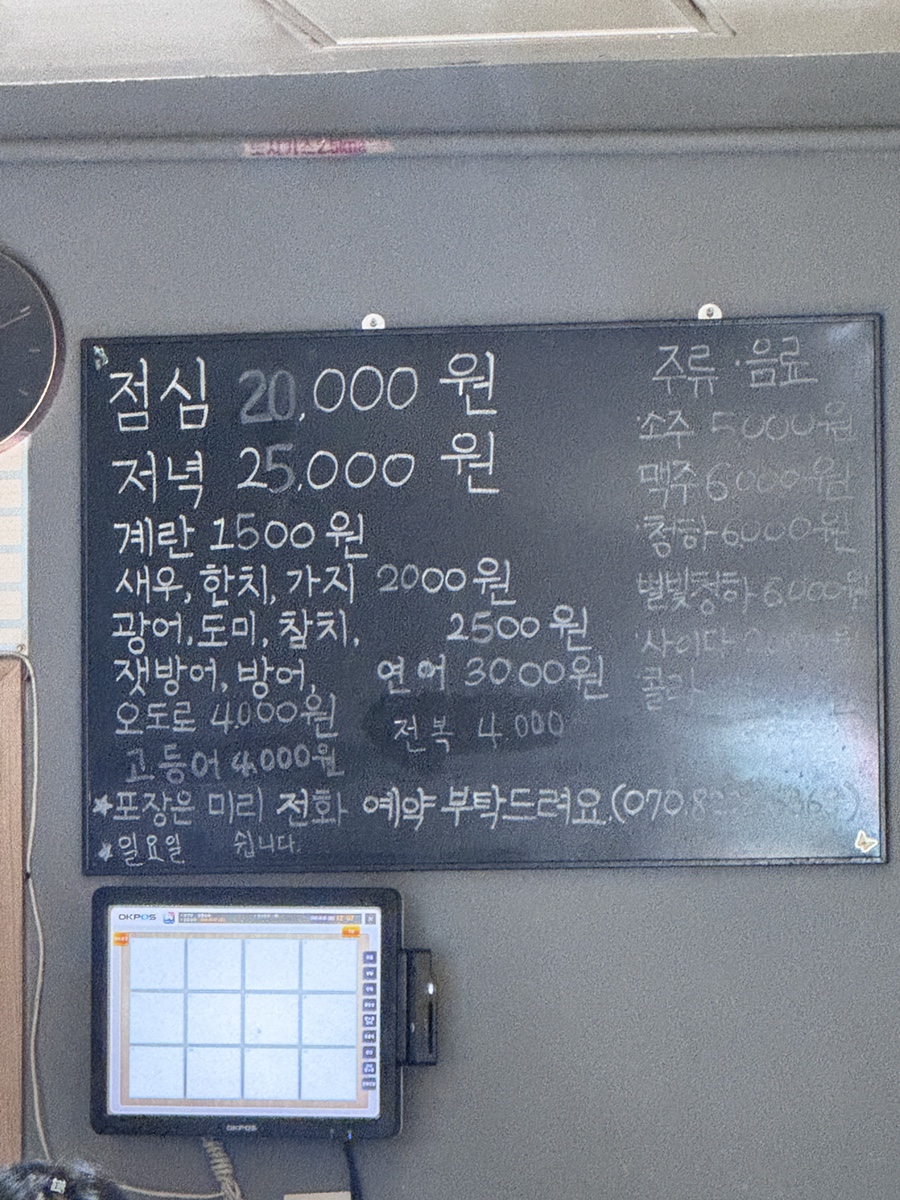 도시가스 2.5kPa
점심 20,000 원
저녁 25,000 원
계란 1500 원
새우, 한치, 가지 2000원
광어, 도미, 참치, 2500원
잿방어, 방어, 연어 3000원
오도로 4.000원 전복 4.000
고등어 4.000원
★포장은 미리 전화 예약 부탁드려요.(070.8
★일요일 쉽니다.
주류·음료
·소주 5000원
맥주 6000원
·청하 6000원
별빛청하 6.000원
사이다
콜라
OKPOS
OKPOS